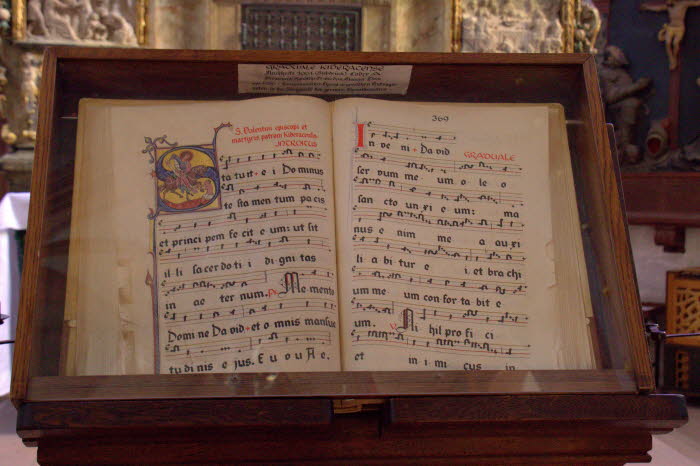 GRADUALE KIDERACENSE
S. Valentini episcopi et
martyris patroni Kideracensis
INTROITUS
S
ta tuit + e i Dominus
te sta men tum pa cis
et principi pem fe cit e um: ut sit
il li sa cer do ti i di gni tas
in ae ter num. Ps. Me mento
Domi ne David + et o mnis mansue
tu di nis e jus. E u o u A e.
369
In ve ni + Da vid
GRADUALE
ser vum me um o le o
san cto un xi e um: ma
nus e nim me a au xi
li a bi tur e i. et bra chi
um me um con for ta bit e
um. V. Ni hil pro fi ci
et in i mi cus in